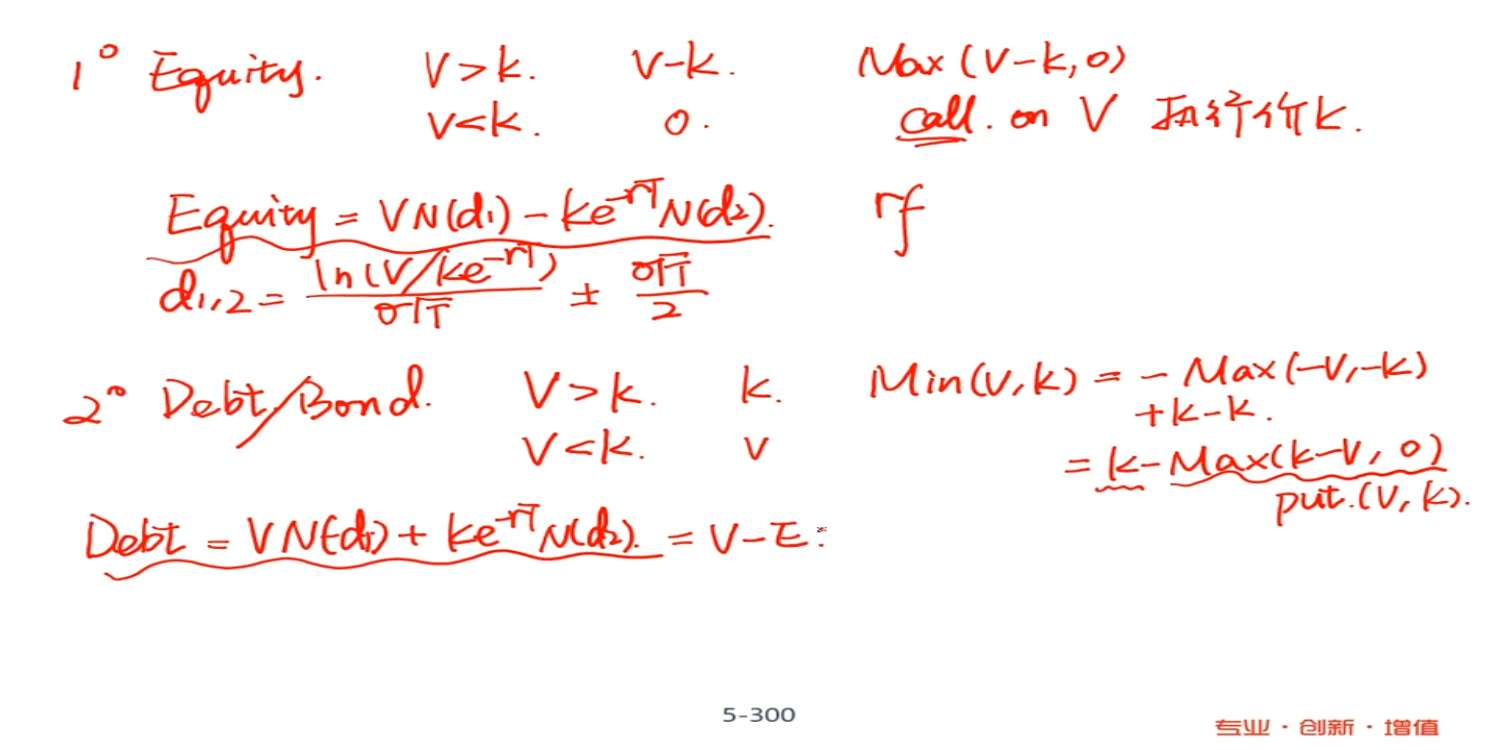 1° Equity. V>k. V-k. Max(V-k,0)
V<k. 0. call. on V 执行价k.
Equity = VN(d₁) - ke^{-rT}N(d₂). rf
d₁,₂ = ln(V/ke^{-rT}) / σ√T ± σ√T / 2
2° Debt/Bond. V>k. k. Min(V,k) = - Max(-V,-k)
+k-k.
V<k. V = k-Max(k-V, 0)
put.(V,k).
Debt = VN(-d₁) + ke^{-rT}N(d₂). = V-E:
5-300
专业·创新·增值